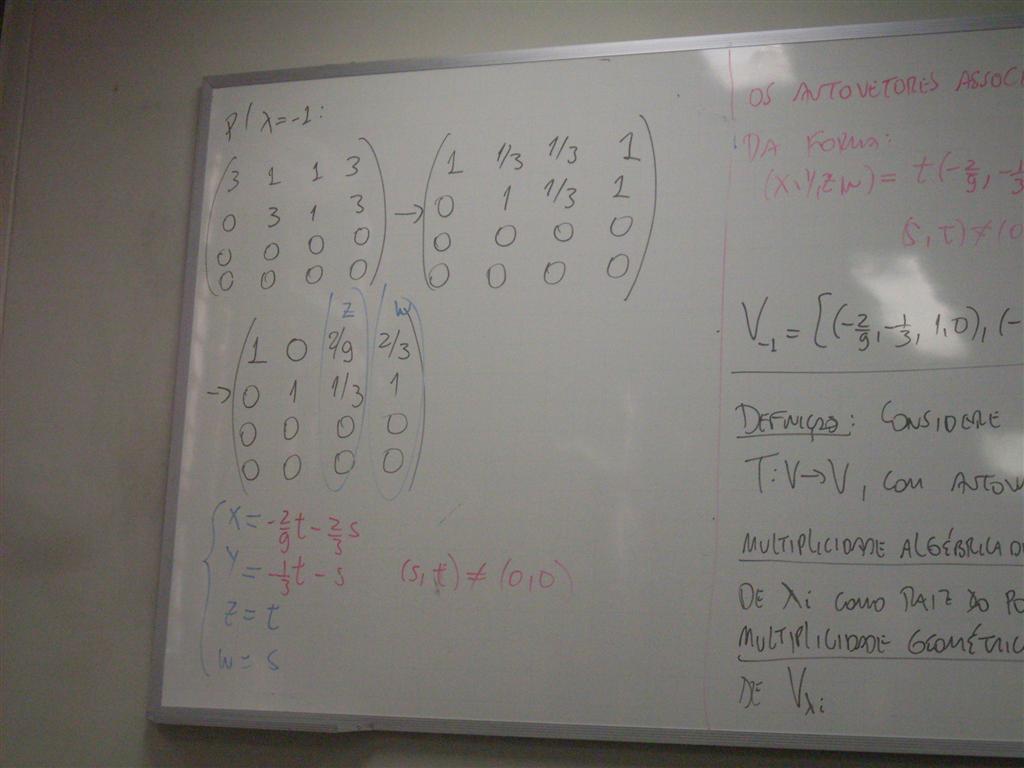 P/ λ=-1:
3 1 1 3
0 3 1 3
0 0 0 0
0 0 0 0
→
1 1/3 1/3 1
0 1 1/3 1
0 0 0 0
0 0 0 0
z w
→
1 0 2/9 2/3
0 1 1/3 1
0 0 0 0
0 0 0 0
x = -2/9 t - 2/3 s
y = -1/3 t - s (s,t) ≠ (0,0)
z = t
w = s
OS AUTOVETORES ASSOCI
DA FORMA:
(x,y,z,w) = t(-2/9, -1/3
(s,t) ≠ (0
V₋₁ = [(-2/9, -1/3, 1, 0), (-
DEFINIÇÃO: CONSIDERE
T: V → V, COM AUTOV
MULTIPLICIDADE ALGÉBRICA D
DE λi COMO RAIZ DO PO
MULTIPLICIDADE GEOMÉTRIC
DE Vλi